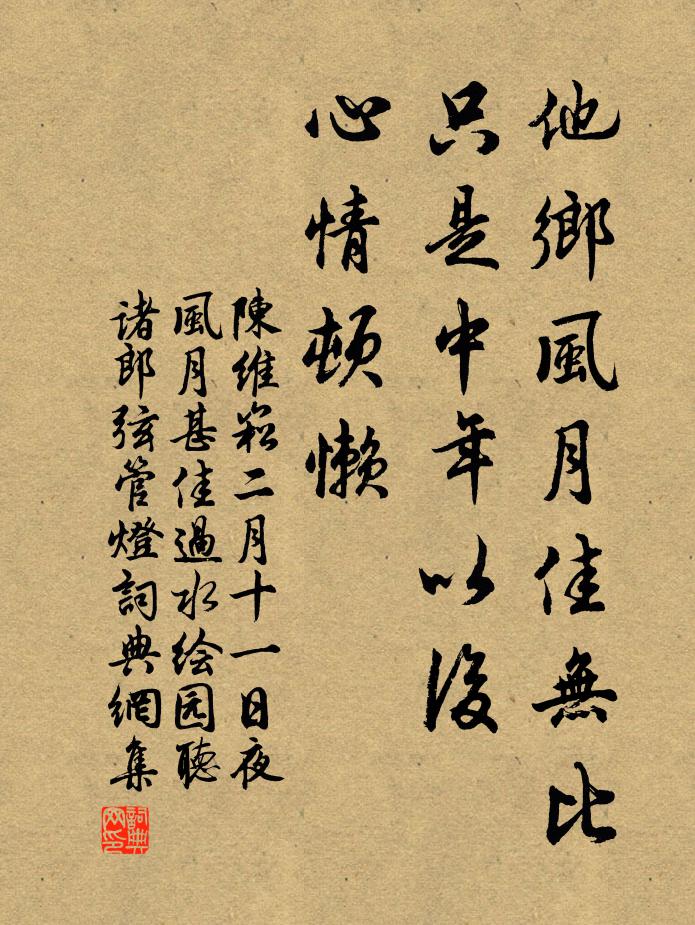 他鄉風月佳無比
只是中年以後
心情頓懶
陳維崧二月十一日夜
風月甚佳過水绘园聽
诸郎弦管燈詞典網集
詞典网印